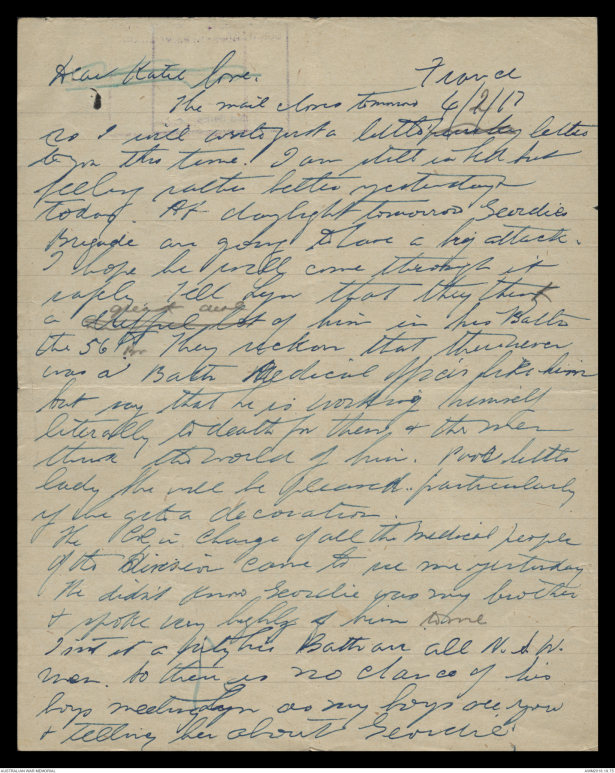 Dear Katie love.
France
4/2/17
The mail closes tomorrow
so I will write just a little letter
to you this time. I am still in bed but
feeling rather better yesterday &
today. At daylight tomorrow Geordie's
Brigade are going to have a big attack.
I hope he will come through it
safely. Tell Lyn that they think
a great deal of him in his Battn
the 56th. They reckon that there never
was a Battn Medical Officer like him
but say that he is working himself
literally to death for them & the men
think the world of him. Poor little
lady she will be pleased particularly
if he gets a decoration.
The Col in charge of all the medical people
of the Division came to see me yesterday
He didn't know Geordie was my brother
& spoke very highly of him to me
Isn't it a pity his Battn are all N.S.W.
men. So there is no chance of his
boys meeting Lyn as my boys see you
& telling her about Geordie.
AUSTRALIAN WAR MEMORIAL